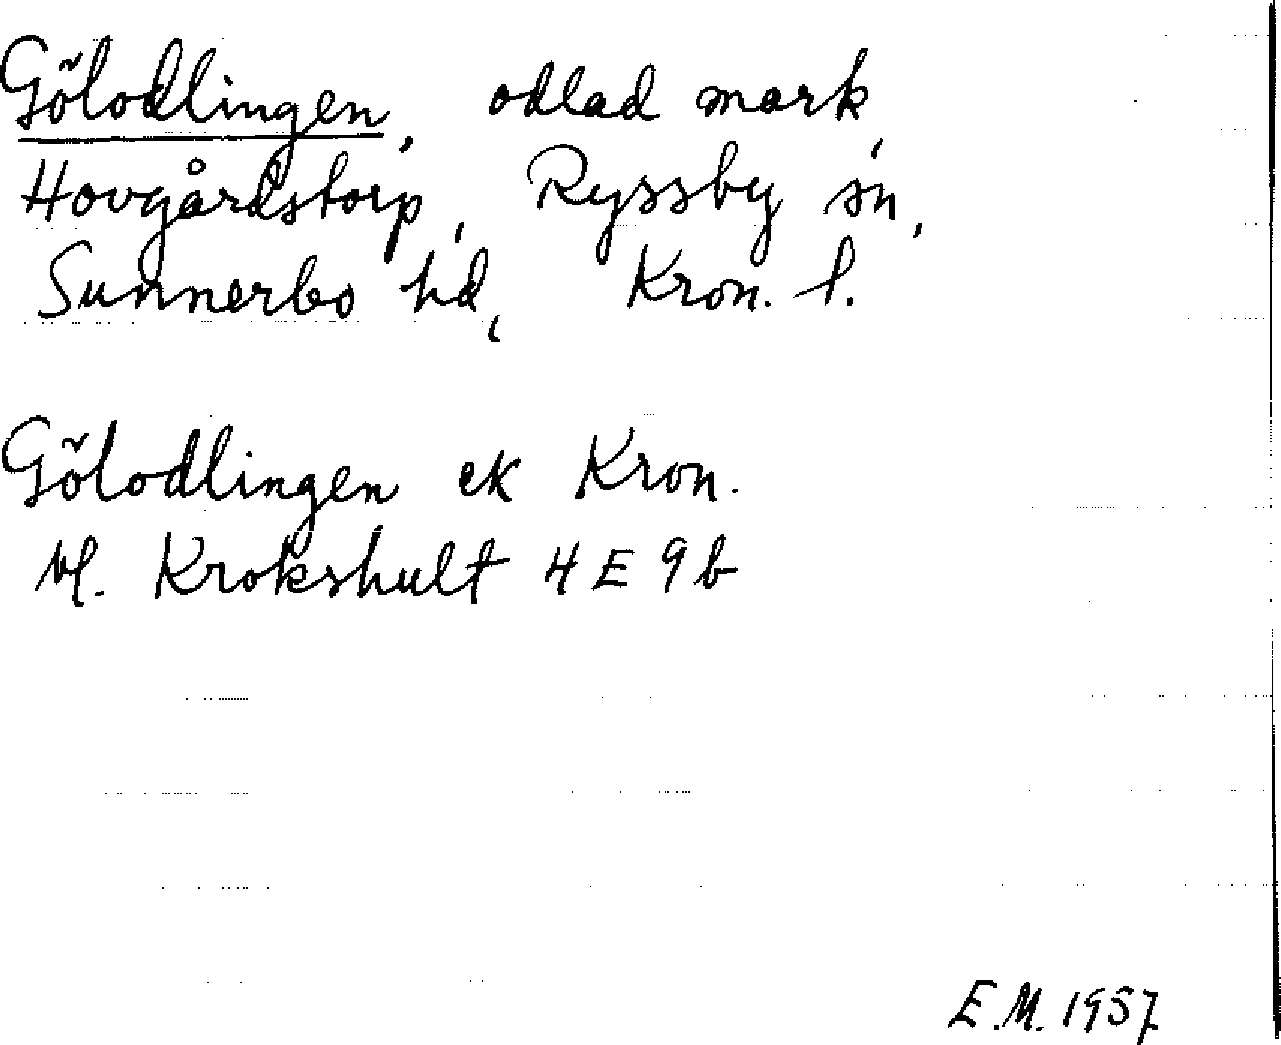 Gölodlingen, odlad mark,
Hovgårdstorp, Ryssby sn,
Sunnerbo hd, Kron. l.
Gölodlingen ek Kron.
bl. Krokshult 4 E 9 b
E.M. 1957